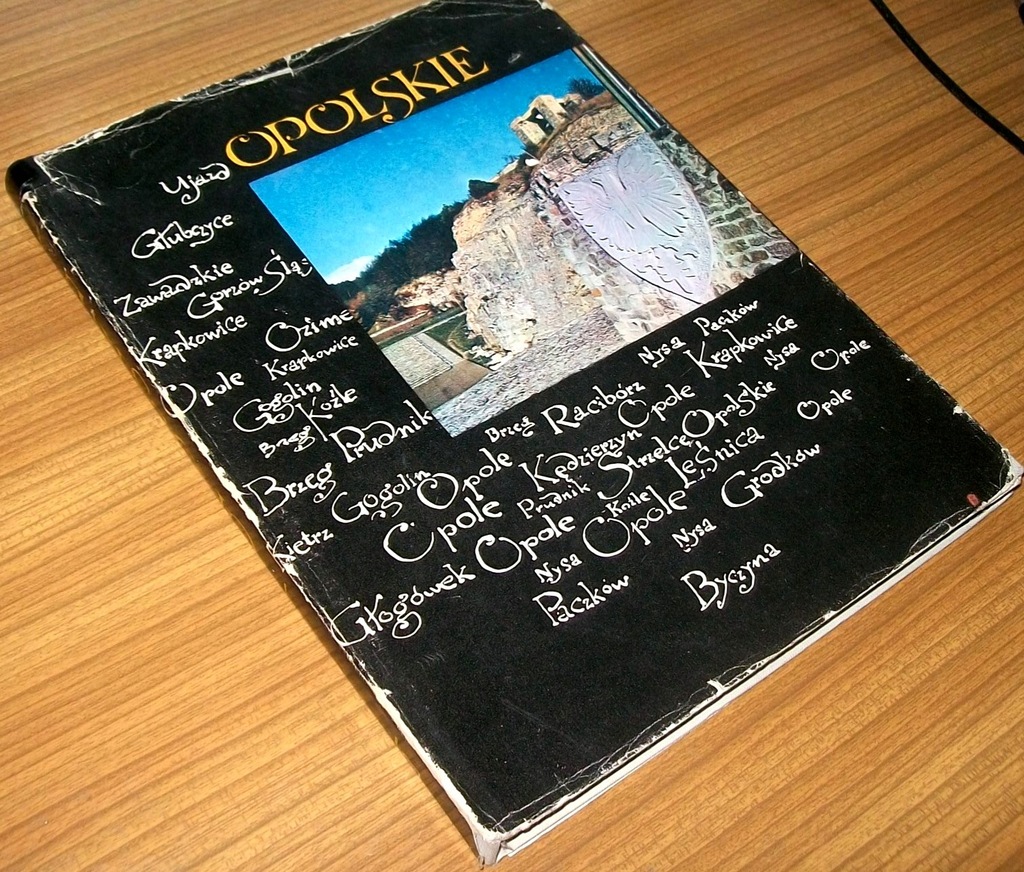 OPOLSKIE
Ujazd
Głubczyce
Zawadzkie
GorzówŚlą
Krapkowice
Ozime
Krapkowice
Opole
Gogolin
Koźle
Brzeg
Prudnik
Brzeg
Gogolin
Kietrz
Głogówek
Brzeg
Racibórz
Nysa
Paczków
Krapkowice
Nysa
Opole
Opole
Kędzierzyn
Opole
Opole
Prudnik
Strzelce Opolskie
Opole
Opole
Koźle
Leśnica
Nysa
Opole
Nysa
Grodków
Paczków
Byczyna